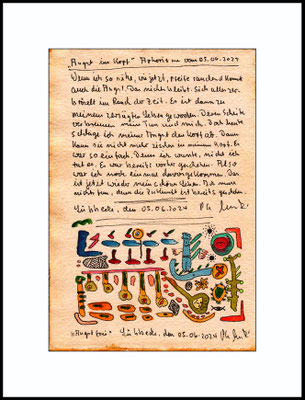 "Angst im Kopf" Aphorismus vom 05.06.2024
Wenn ich so sitze, wie jetzt, Pfeife rauchend kommt
auch die Angst. Das nichts bleibt. Sich alles zer-
bröselt im Rand der Zeit. Es ist dann so
meinem verrückten Leben geworden. Diese Seite
verbrennen mein Tun und mich. Doch heute
schlage ich meiner Angst den Kopf ab. Dann
kann sie nicht mehr zischen in meinem Kopf. Es
war so einfach. Denn ich wusste, nicht ich
tat es. Es war bereits vorher geschehen. Also
war ich noch einmal davongekommen. Das
ist jetzt wieder mein schönes Leben. Da muss
nichts tun, denn die Zukunft ist bereits geschehen.
Lübbecke, den 05.06.2024
"Angst frei" Lübbecke, den 05.06.2024